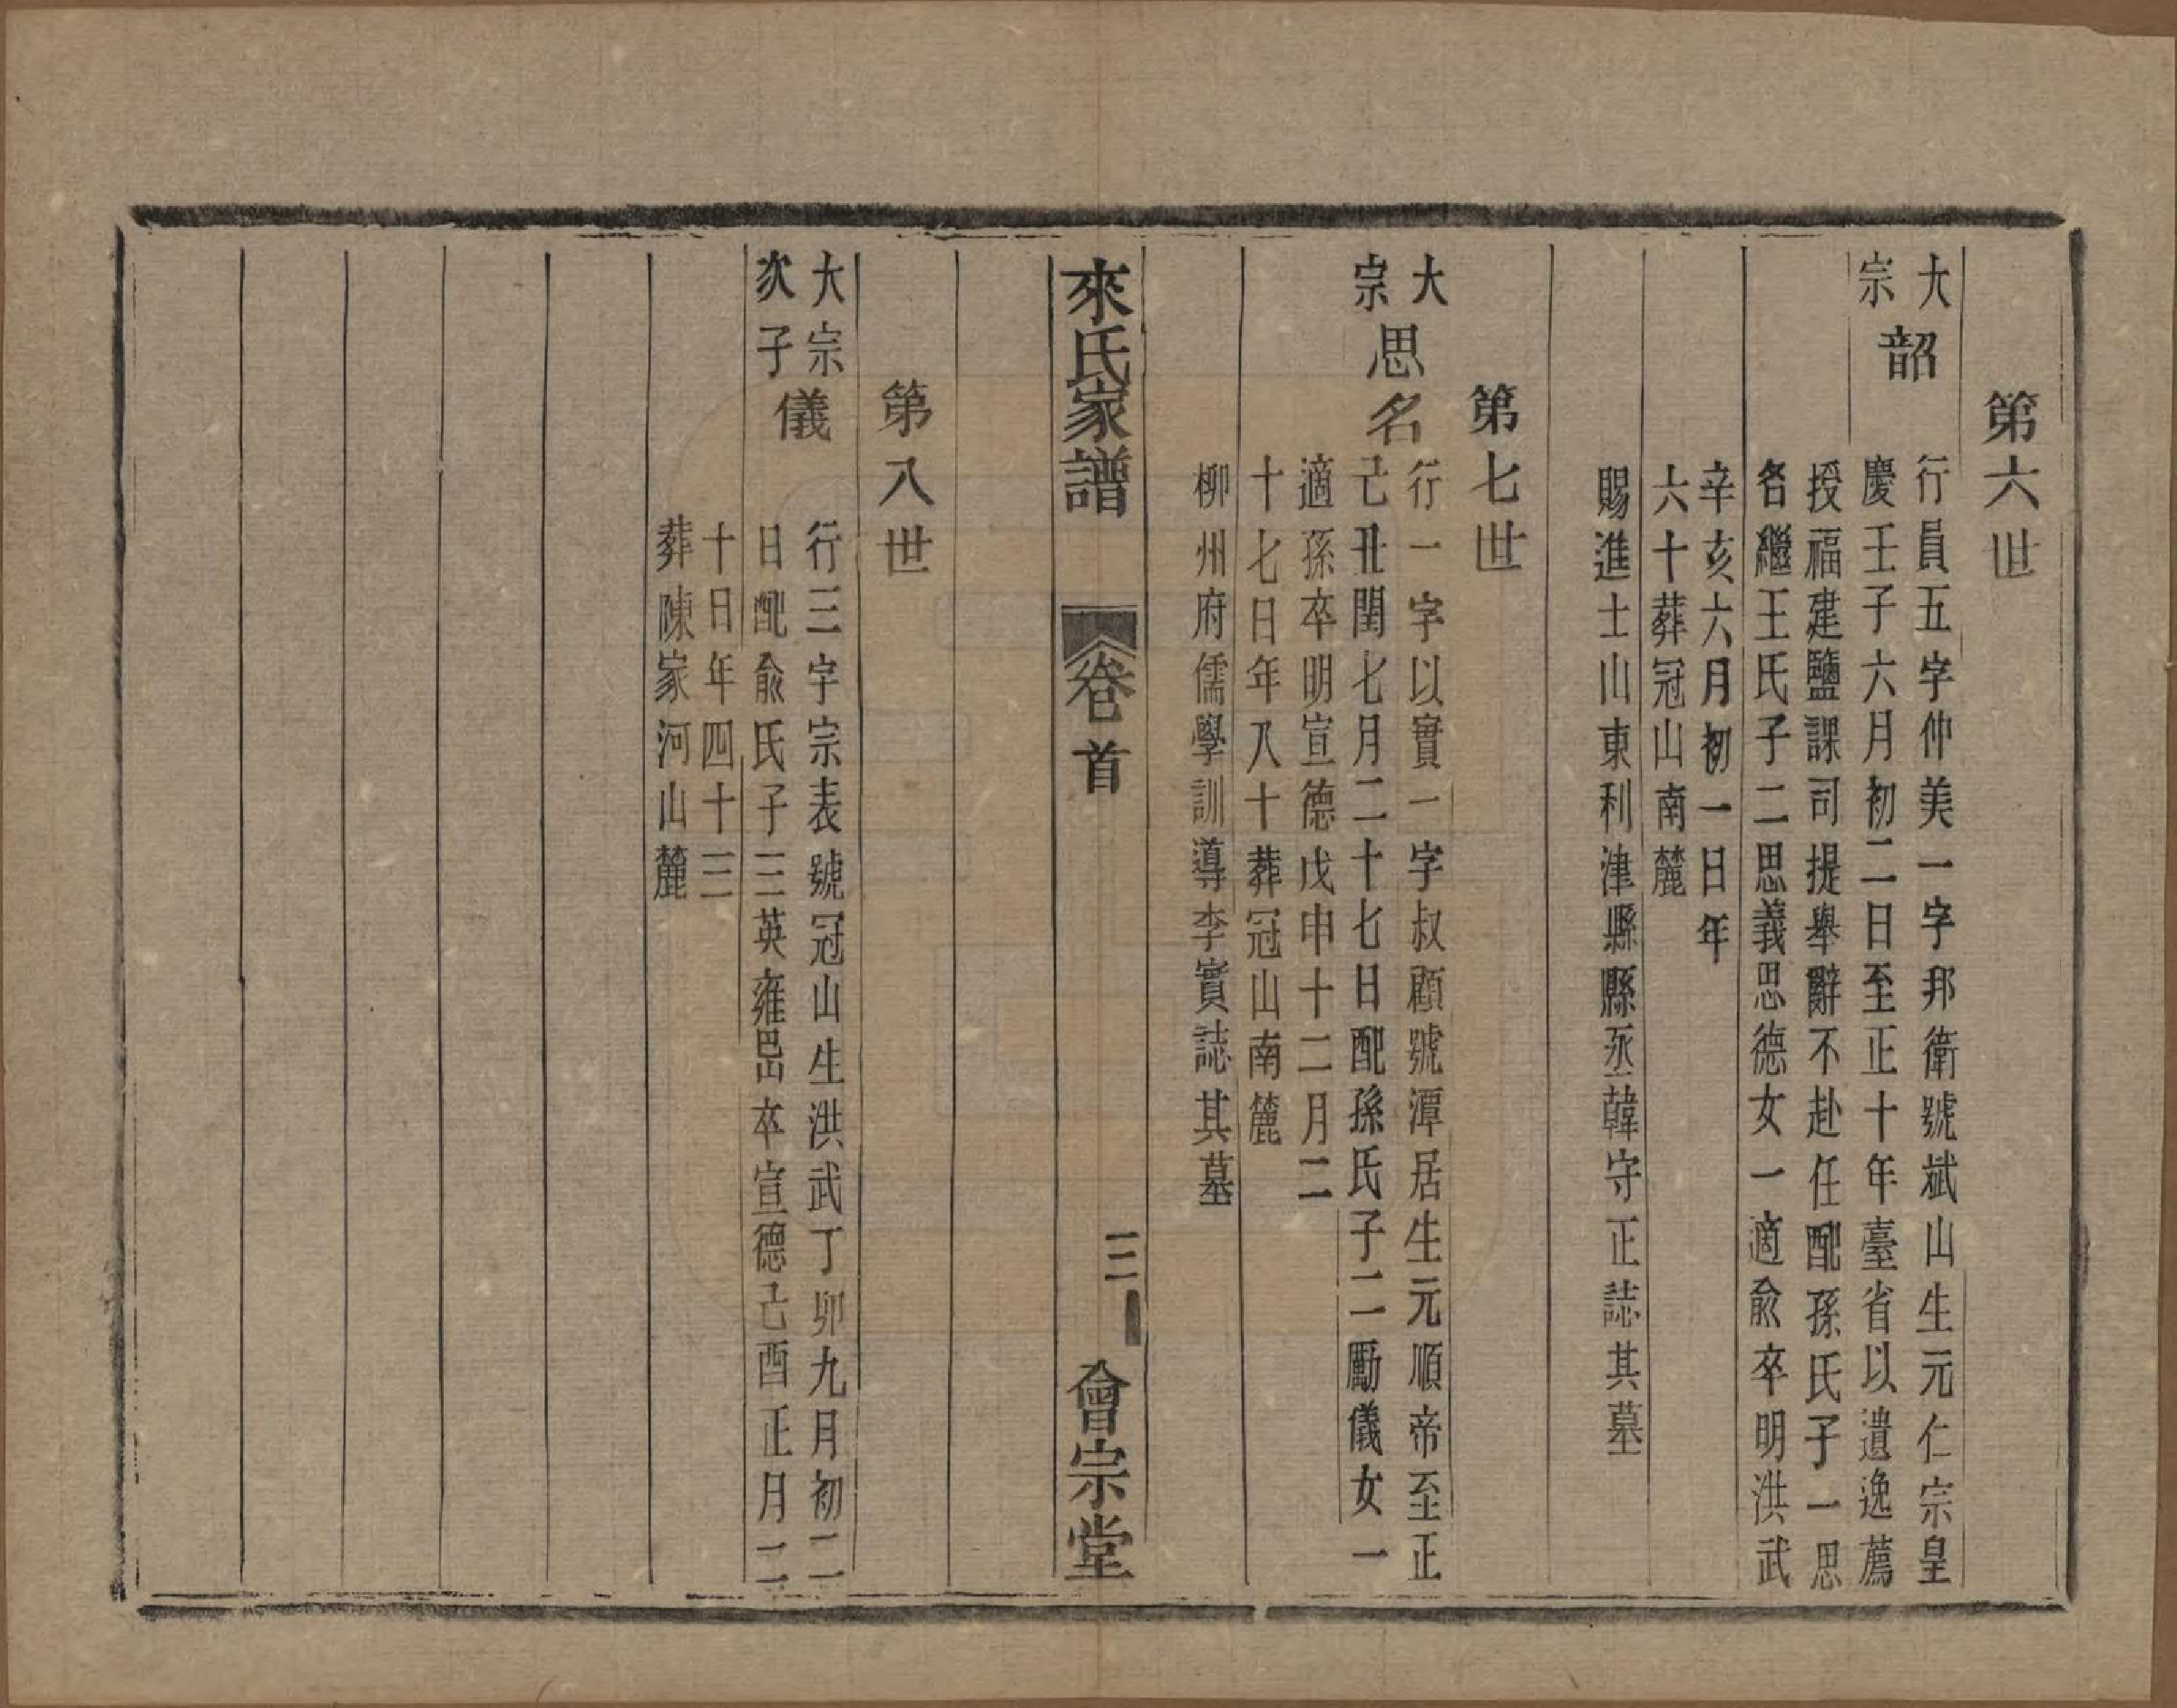 第六世
大宗
韶
行員五字仲美一字邦衛號斌山生元仁宗皇
慶壬子六月初二日至正十年臺省以遺逸薦
授福建鹽課司提舉辭不赴任配孫氏子一思
名繼王氏子二思義思德女一適俞卒明洪武
辛亥六月初一日年
六十葬冠山南麓
賜進士山東利津縣縣丞韓守正誌其墓
第七世
大宗
思名
行一字以實一字叔顧號潭居生元順帝至正
己丑閏七月二十七日配孫氏子二勵儀女一
適孫卒明宣德戊申十二月二
十七日年八十葬冠山南麓
柳州府儒學訓導李實誌其墓
來氏家譜
卷首
三
會宗堂
第八世
大宗
次子
儀
行三字宗表號冠山生洪武丁卯九月初二
日配俞氏子三英雍巼卒宣德己酉正月二
十日年四十三
葬陳家河山麓